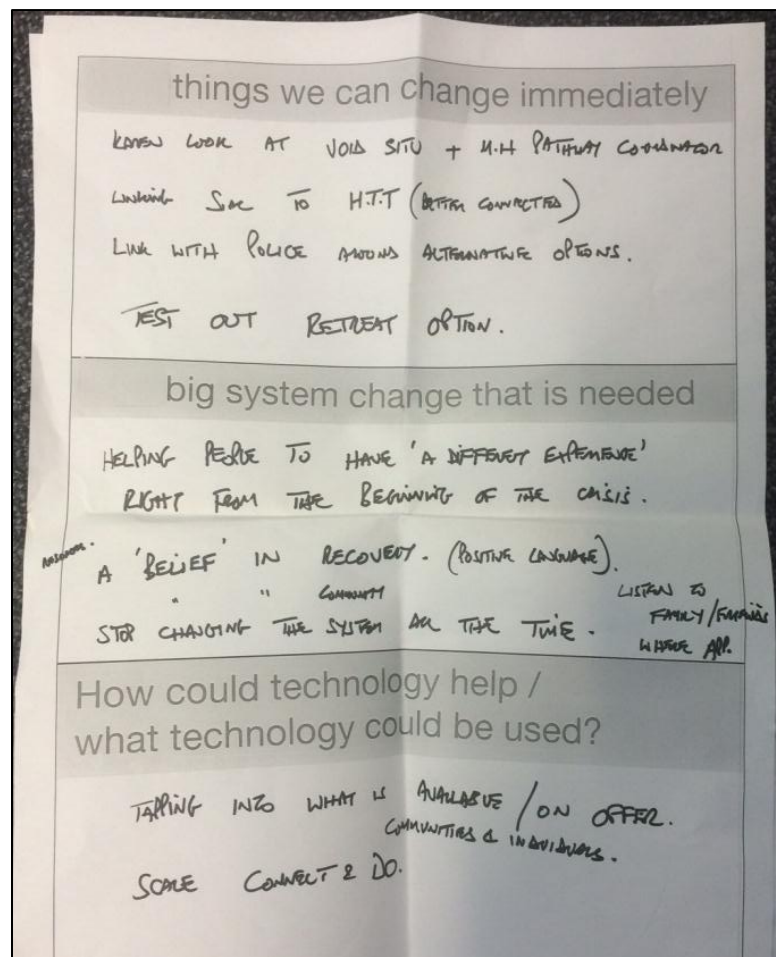 things we can change immediately
KAREN LOOK AT VOID SITU + M.H PATHWAY COORDINATOR
Linking TO H.T.T (BETTER CONNECTED)
LINK WITH POLICE AROUND ALTERNATIVE OPTIONS.
TEST OUT RETREAT OPTION.
big system change that is needed
HELPING PEOPLE TO HAVE 'A DIFFERENT EXPERIENCE'
RIGHT FROM THE BEGINNING OF THE CRISIS.
A 'BELIEF' IN RECOVERY. (POSITIVE LANGUAGE).
" " COMMUNITY
STOP CHANGING THE SYSTEM ALL THE TIME.
LISTEN TO
FAMILY/FRIENDS
WHERE APP.
How could technology help /
what technology could be used?
TAPPING INTO WHAT IS AVAILABLE / ON OFFER.
COMMUNITIES & INDIVIDUALS.
SCALE CONNECT & DO.